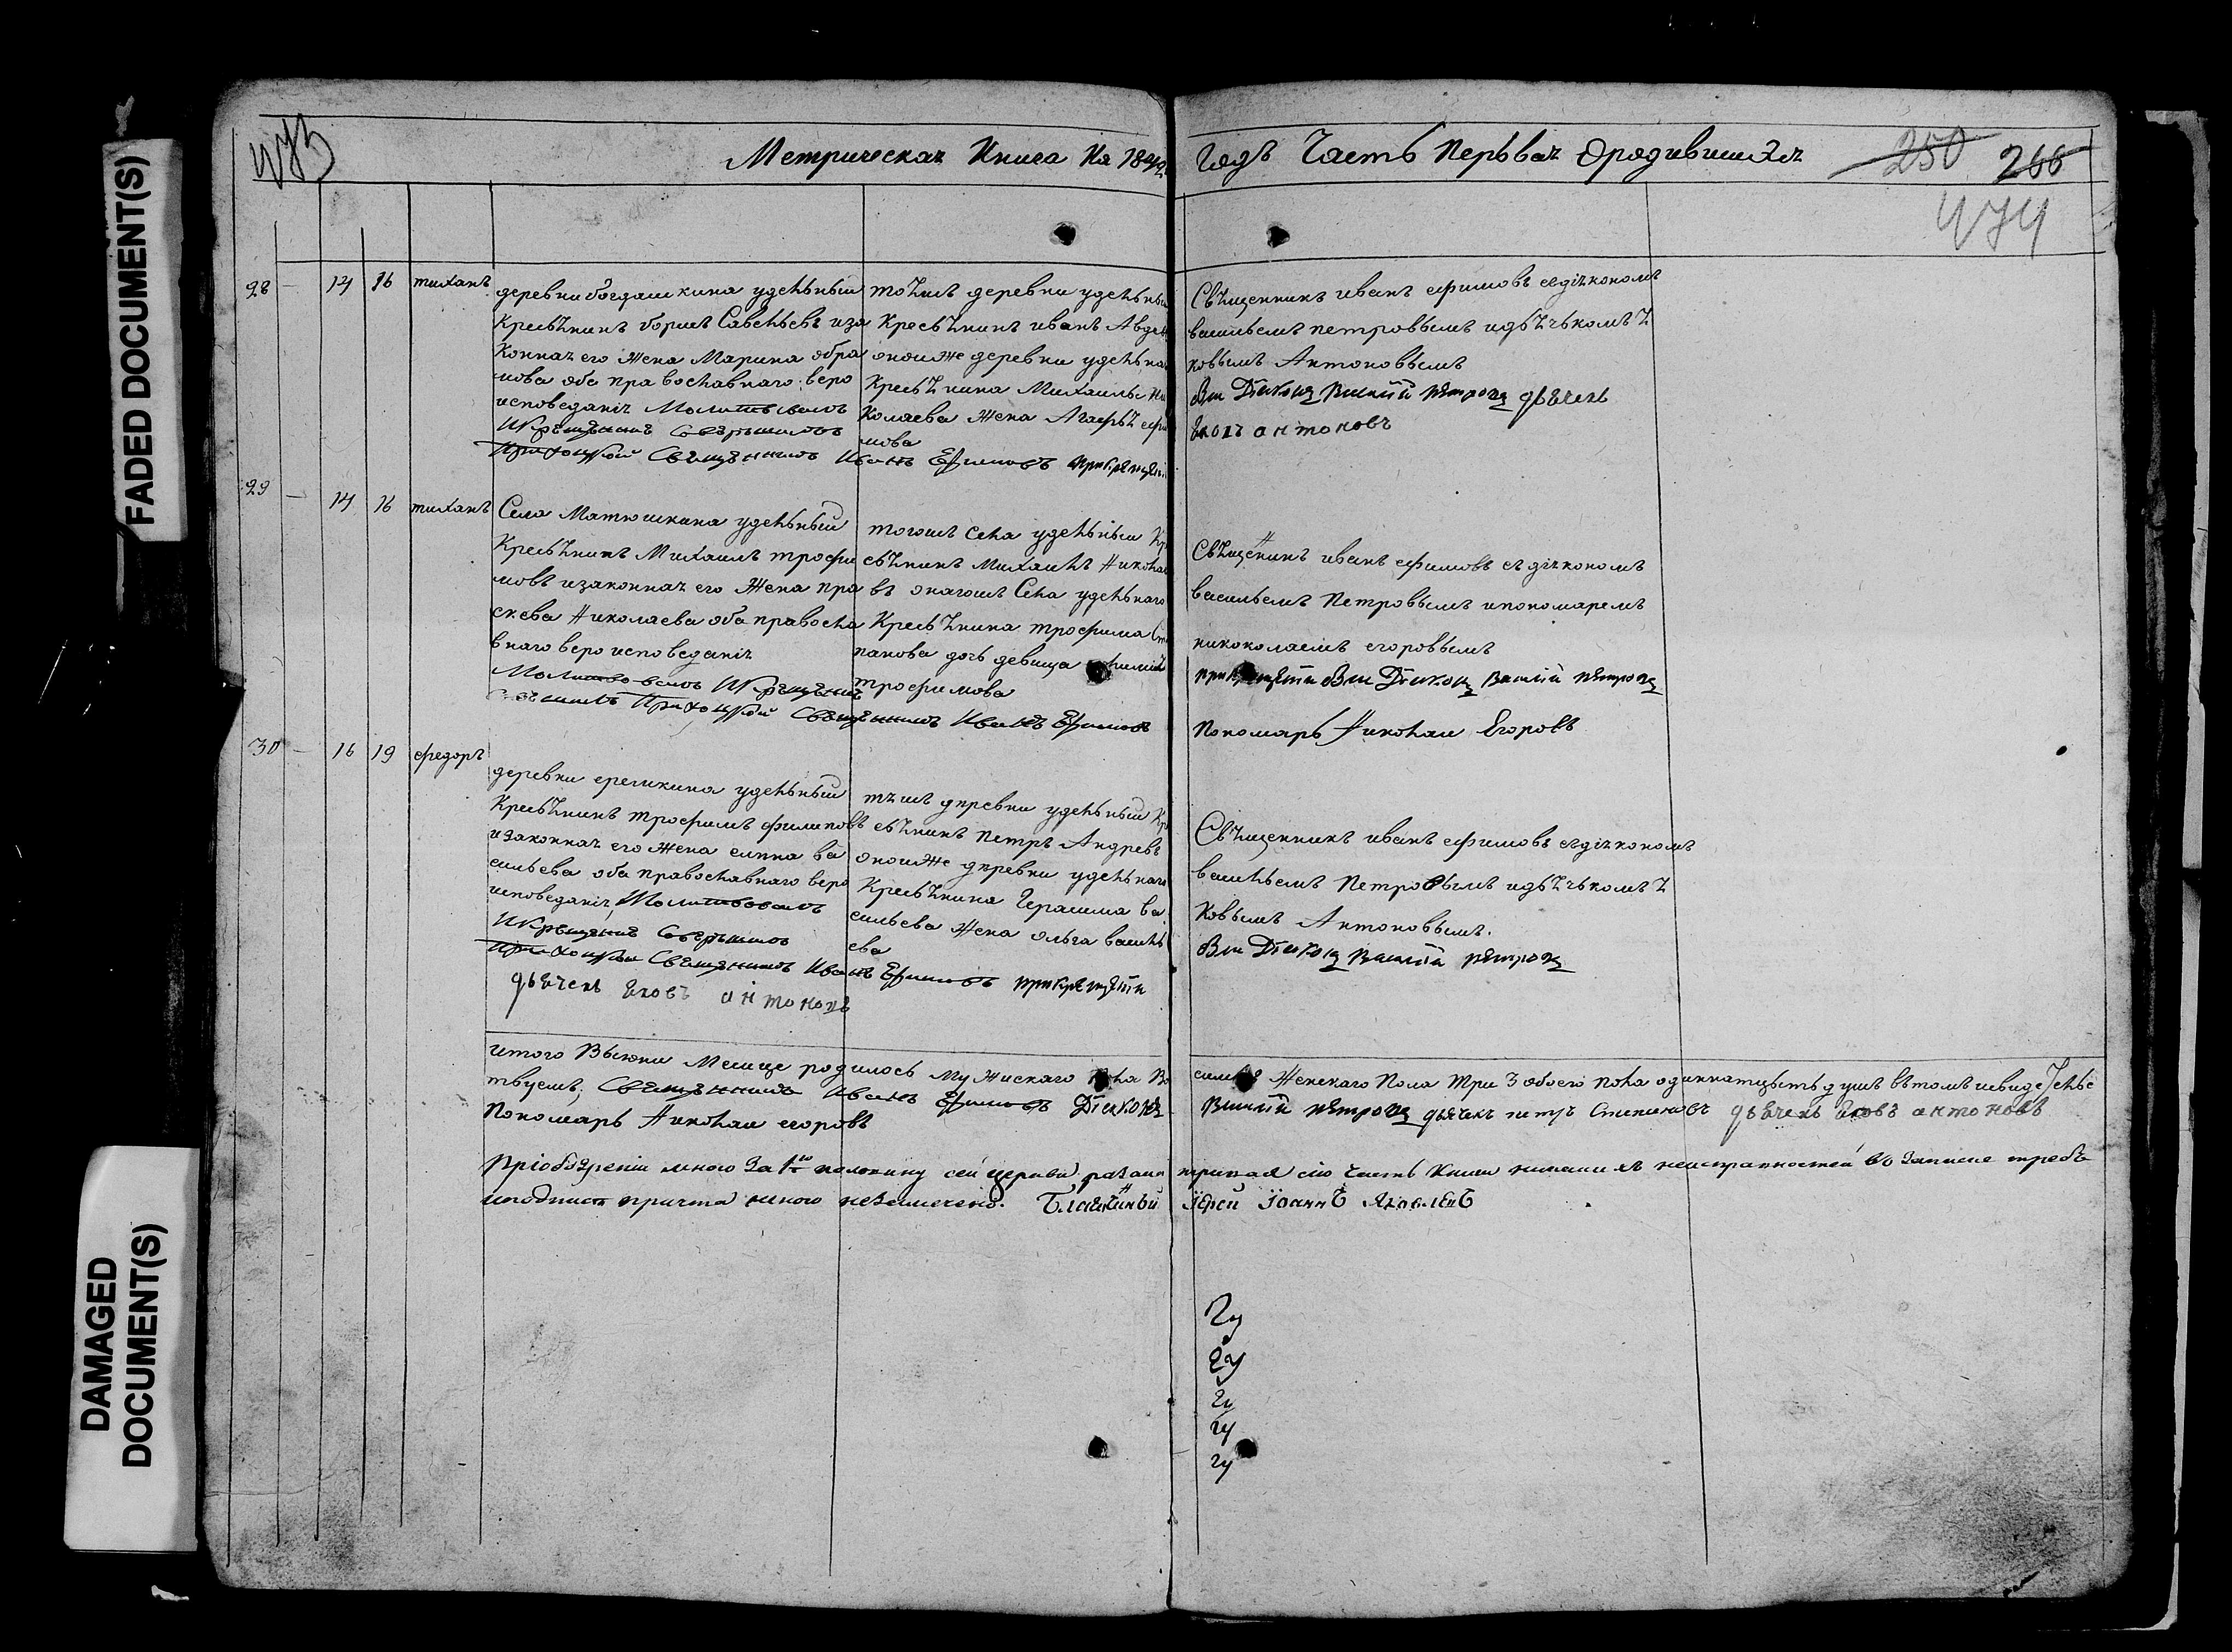 FADED DOCUMENT(S)
DAMAGED DOCUMENT(S)
473
Метрическая Книга На 1842 Годъ Часть Перьвая Ородившихся
250 266
474
28 — 14 16 тиханъ
деревни богдашкина удельный
Кресьянинъ борисъ Савельевъ иза
конная его Жена Марина обра
мова оба православнаго веро
исповеданія Молитвовалъ
И Крещенiе Совершилъ
Приходской Священникъ Иванъ Ефимовъ при крещенiи
тоЪже деревни удельный
Кресьянинъ иванъ Авде
оноиже деревни удельна
Кресьянина Михаилы Ни
колаева Жена Агафья ефи
мова
Священникъ иванъ ефимовъ сдіякономъ
васильемъ петровымъ идьячькомъ я
ковымъ Антоновымъ
Были Дiяконъ Василiй Петровъ дьячекъ
Яковъ антоновъ
29 — 14 16 тиханъ
Села Матюшкина удельный
Кресьянинъ Михаилъ трофи
мовъ изаконная его Жена пра
скева Николаева оба правосла
внаго веро исповеданія
Молитвовалъ И Крещенiе
Приходской Священникъ Иванъ Ефимовъ
тогожъ села удельный Кр
сьянинъ Михаилъ Никола
въ онагожъ Села удельнаго
Кресьянина трофима Сте
панова дочь девица
трофимова
Священикъ иванъ ефимовъ съдіякономъ
васильемъ Петровымъ ипономаремъ
никоколаемъ егоровымъ
при крещенiи были Дiяконъ Василiй Петровъ
Пономарь Николаи Егоровъ
30 — 16 19 федоръ
деревни ерепкина удельный
Кресьянинъ трофимъ филиповъ
изаконная его Жена елина ва
сильева оба православнаго веро
исповеданія, Молитвовалъ
И Крещенiе Совершилъ
Приходской Священникъ Иванъ Ефимовъ при крещенiи
дьячекъ Яковъ антоновъ
деревни удельный Кр
сьянинъ петръ Андревъ
оноиже деревни удельнаго
Кресьянина Герасима ва
сильева Жена ольга василь
ева
Священникъ иванъ ефимовъ сдіякономъ
васильемъ Петровымъ идьячькомъ я
ковымъ Антоновымъ.
Были Дiяконъ Василiй Петровъ
итого Въиюни Месице родилось Мужискаго пола Во семь 8 Женскаго Пола три 3 обоего пола одиннатцеть душъ вътомъ исвиде тельс
твуемъ, Священникъ Иванъ Ефимовъ Дiяконъ Василiй Петровъ дьячекъ петръ Степановъ дьячекъ Яковъ антоновъ
Пономарь Николаи егоровъ
При обозренiи мною За 1ю половину сей церкви, сiю часть книги никакихъ неисправностей въ записке требъ
иподписи причта мною незамечено. Благочинный Iерей Iоаннъ Яковлевъ